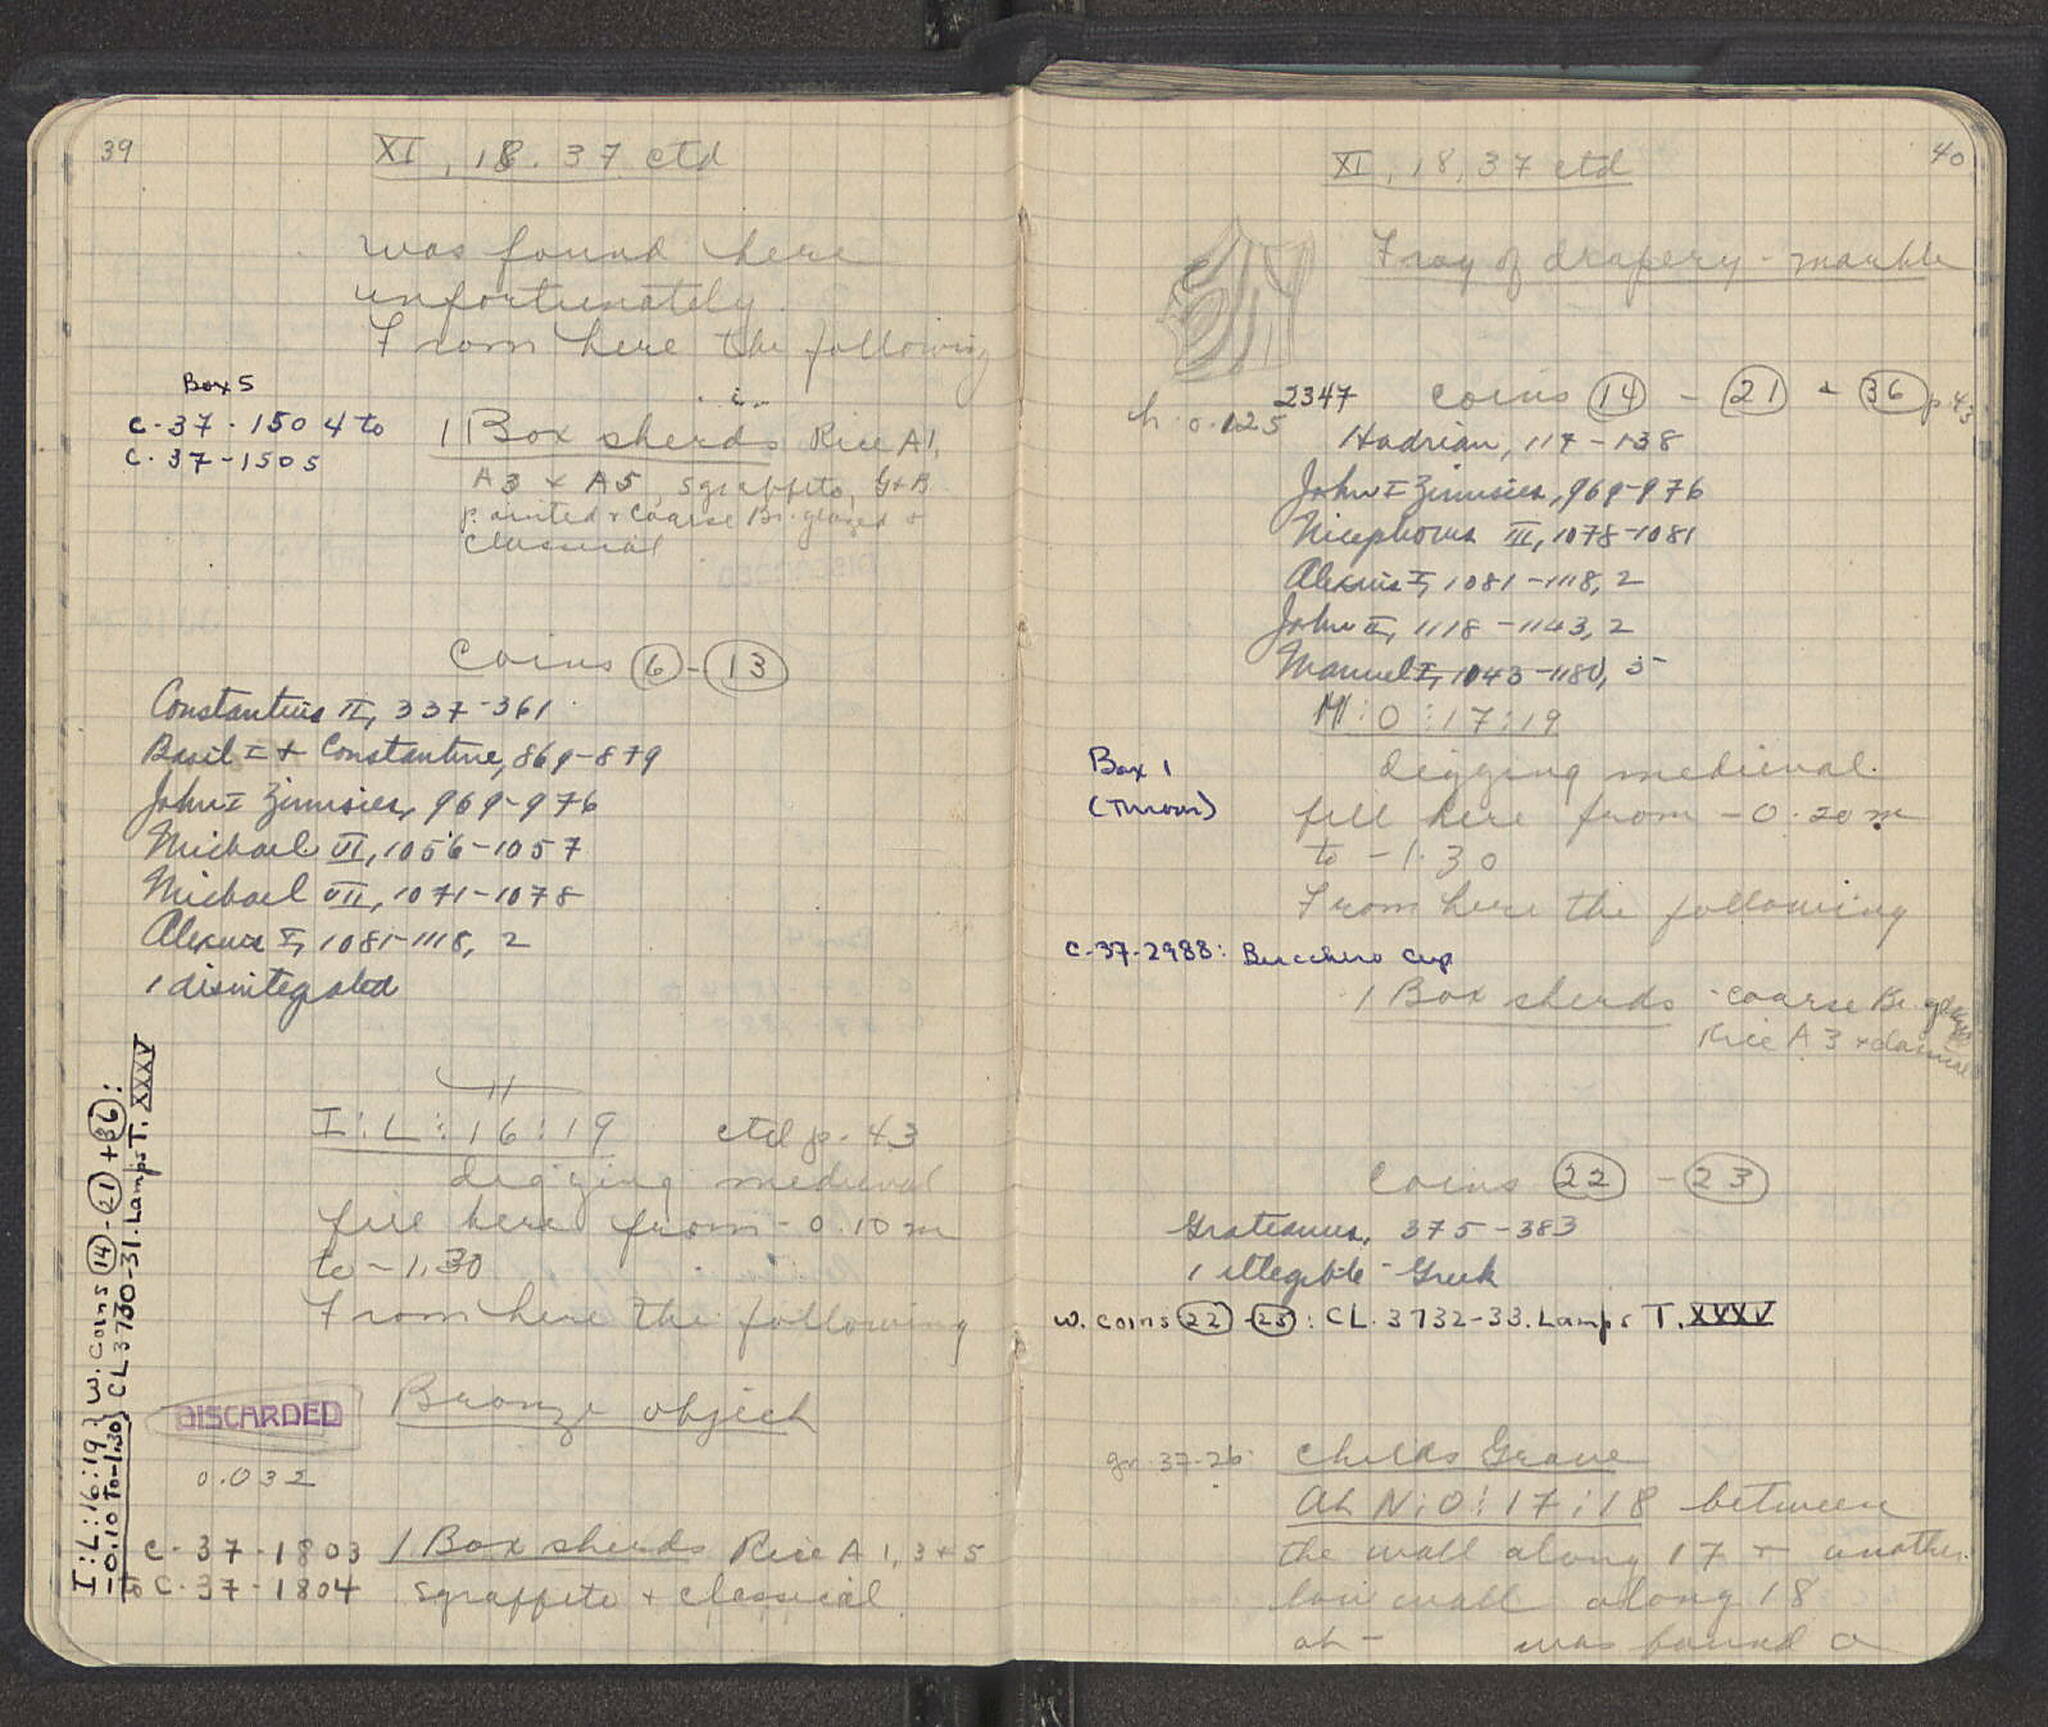 39
XI, 18.37 ctd
was found here
unfortunately.
From here the following
Box 5
C-37-1504 to
C-37-1505
1 Box sherds Rice A1,
A3 + A5, sgraffito, G+B
painted + coarse Br. glazed +
classical
Coins 6 - 13
Constantius II, 337-361
Basil I + Constantine, 869-879
John I Zimisces, 969-976
Michael VI, 1056-1057
Michael VII, 1071-1078
Alexius I, 1081-1118, 2
1 disintegrated
I:L:16:19 ctd p. 43
digging medieval
fill here from -0.10 m
to -1.30
From here the following
Bronze object
DISCARDED
0.032
C-37-1803 1 Box sherds Rice A 1, 3 + 5
to C-37-1804 sgraffito + classical
I:L:16:19 } w. coins 14 - 21 + 36:
-0.10 to -1.30 } CL 3730-31. Lamps T. XXXV
40
XI, 18, 37 ctd
Frag of drapery - marble
2347
h. 0.125
Coins 14 - 21 + 36 p 43
Hadrian, 117-138
John I Zimisces, 969-976
Nicephorus III, 1078-1081
Alexius I, 1081-1118, 2
John II, 1118-1143, 2
Manuel I, 1043-1180, 5
M:O:17:19
Box 1
(Thrown)
digging medieval
fill here from -0.20 m
to -1.30
From here the following
C-37-2988: Bucchero cup
1 Box sherds - coarse Br. glazed
Rice A 3 +
Coins 22 - 23
Gratianus, 375-383
1 illegible - Greek
w. coins 22 - 23: CL. 3732-33. Lamps T. XXXV
gr. 37-26: Childs Grave
At N:O:17:18 between
the wall along 17 + another
low wall along 18
at - was found a